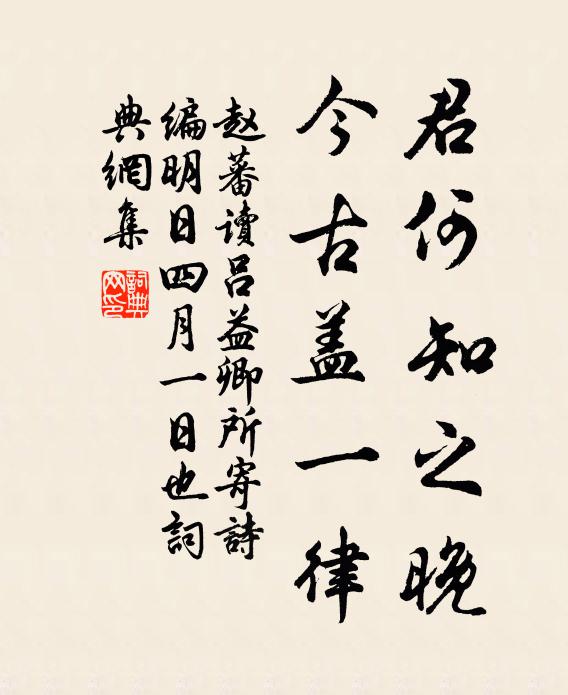 君何知之晚
今古盖一律
赵蕃讀呂益卿所寄詩
编明日四月一日也詞
典網集
詞典網印